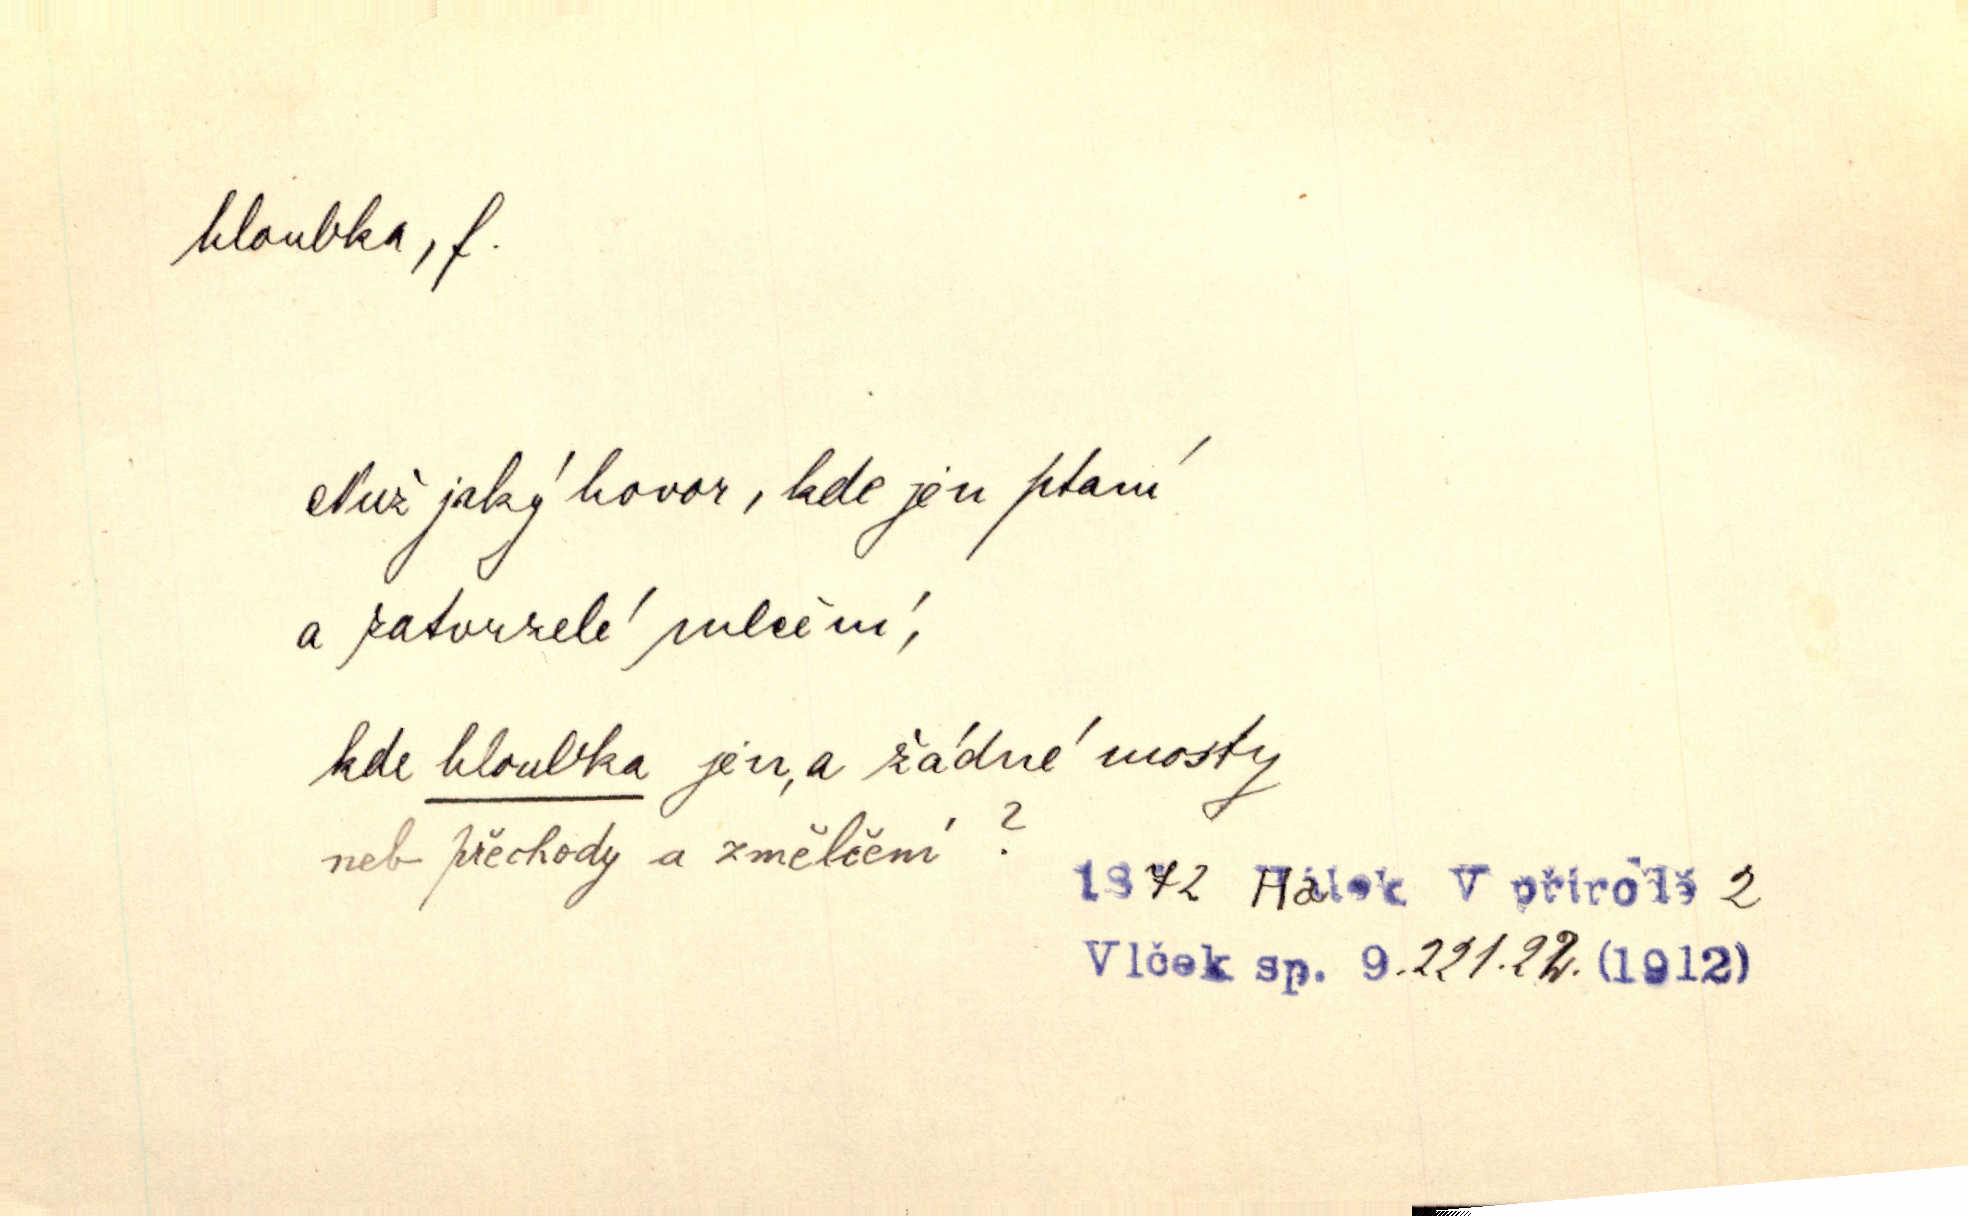 hloubka, f.
Nuž jaký hovor, kde jen ptaní
a zatvrzelé mlčení,
kde hloubka jen, a žádné mosty
neb přechody a změlčení?
1872 Hálek V přírodě 2
Vlček sp. 9.221.22. (1912)